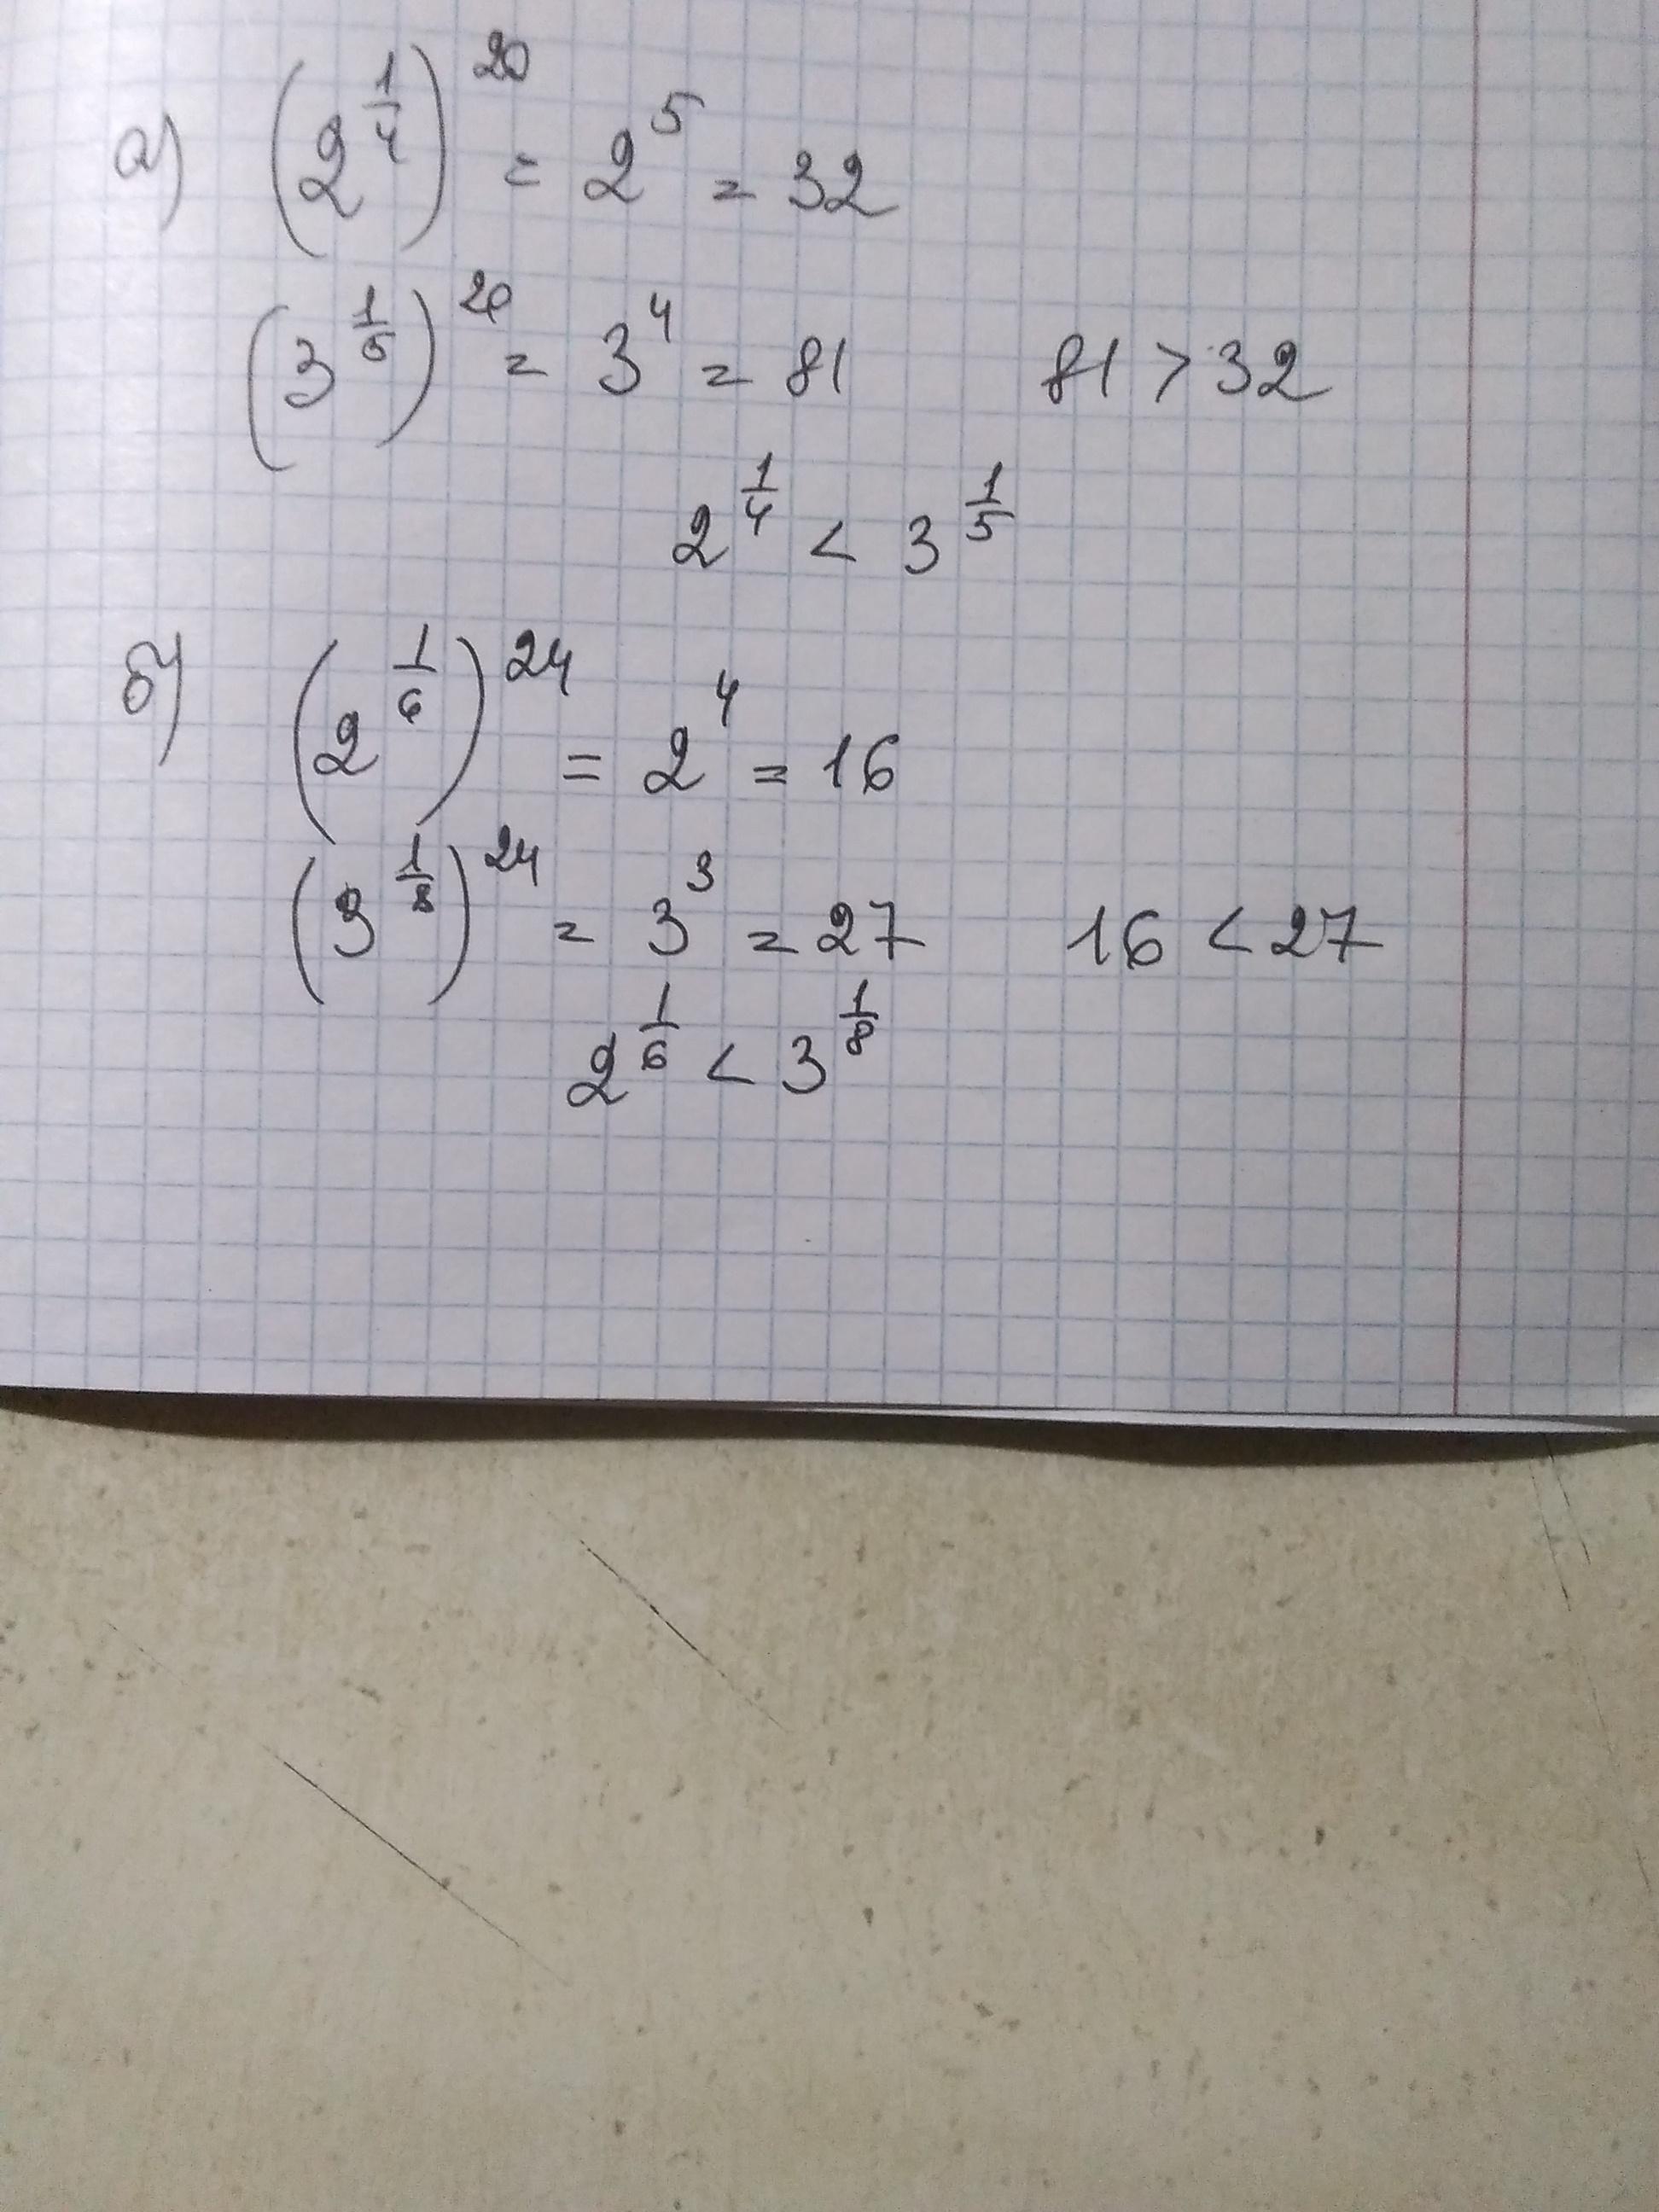 а) (2^(1/4))^20 = 2^5 = 32
(3^(1/5))^20 = 3^4 = 81 81 > 32
2^(1/4) < 3^(1/5)
б) (2^(1/6))^24 = 2^4 = 16
(3^(1/8))^24 = 3^3 = 27 16 < 27
2^(1/6) < 3^(1/8)